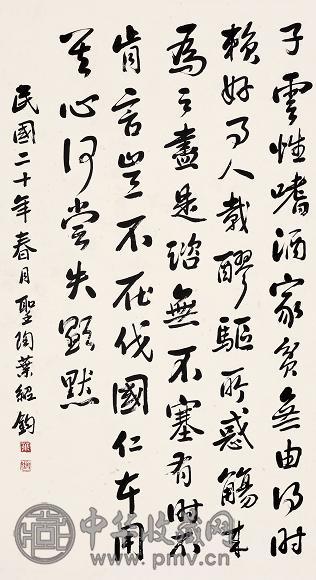 子雲性嗜酒家貧無由得時
賴好事人載醪驅所惑觴來
為之盡是諮無不塞有時不
肯言豈不在伐國仁者用
其心何嘗失顯默
民國二十年春月聖陶葉紹鈞
中华收藏网
www.pmv.cn